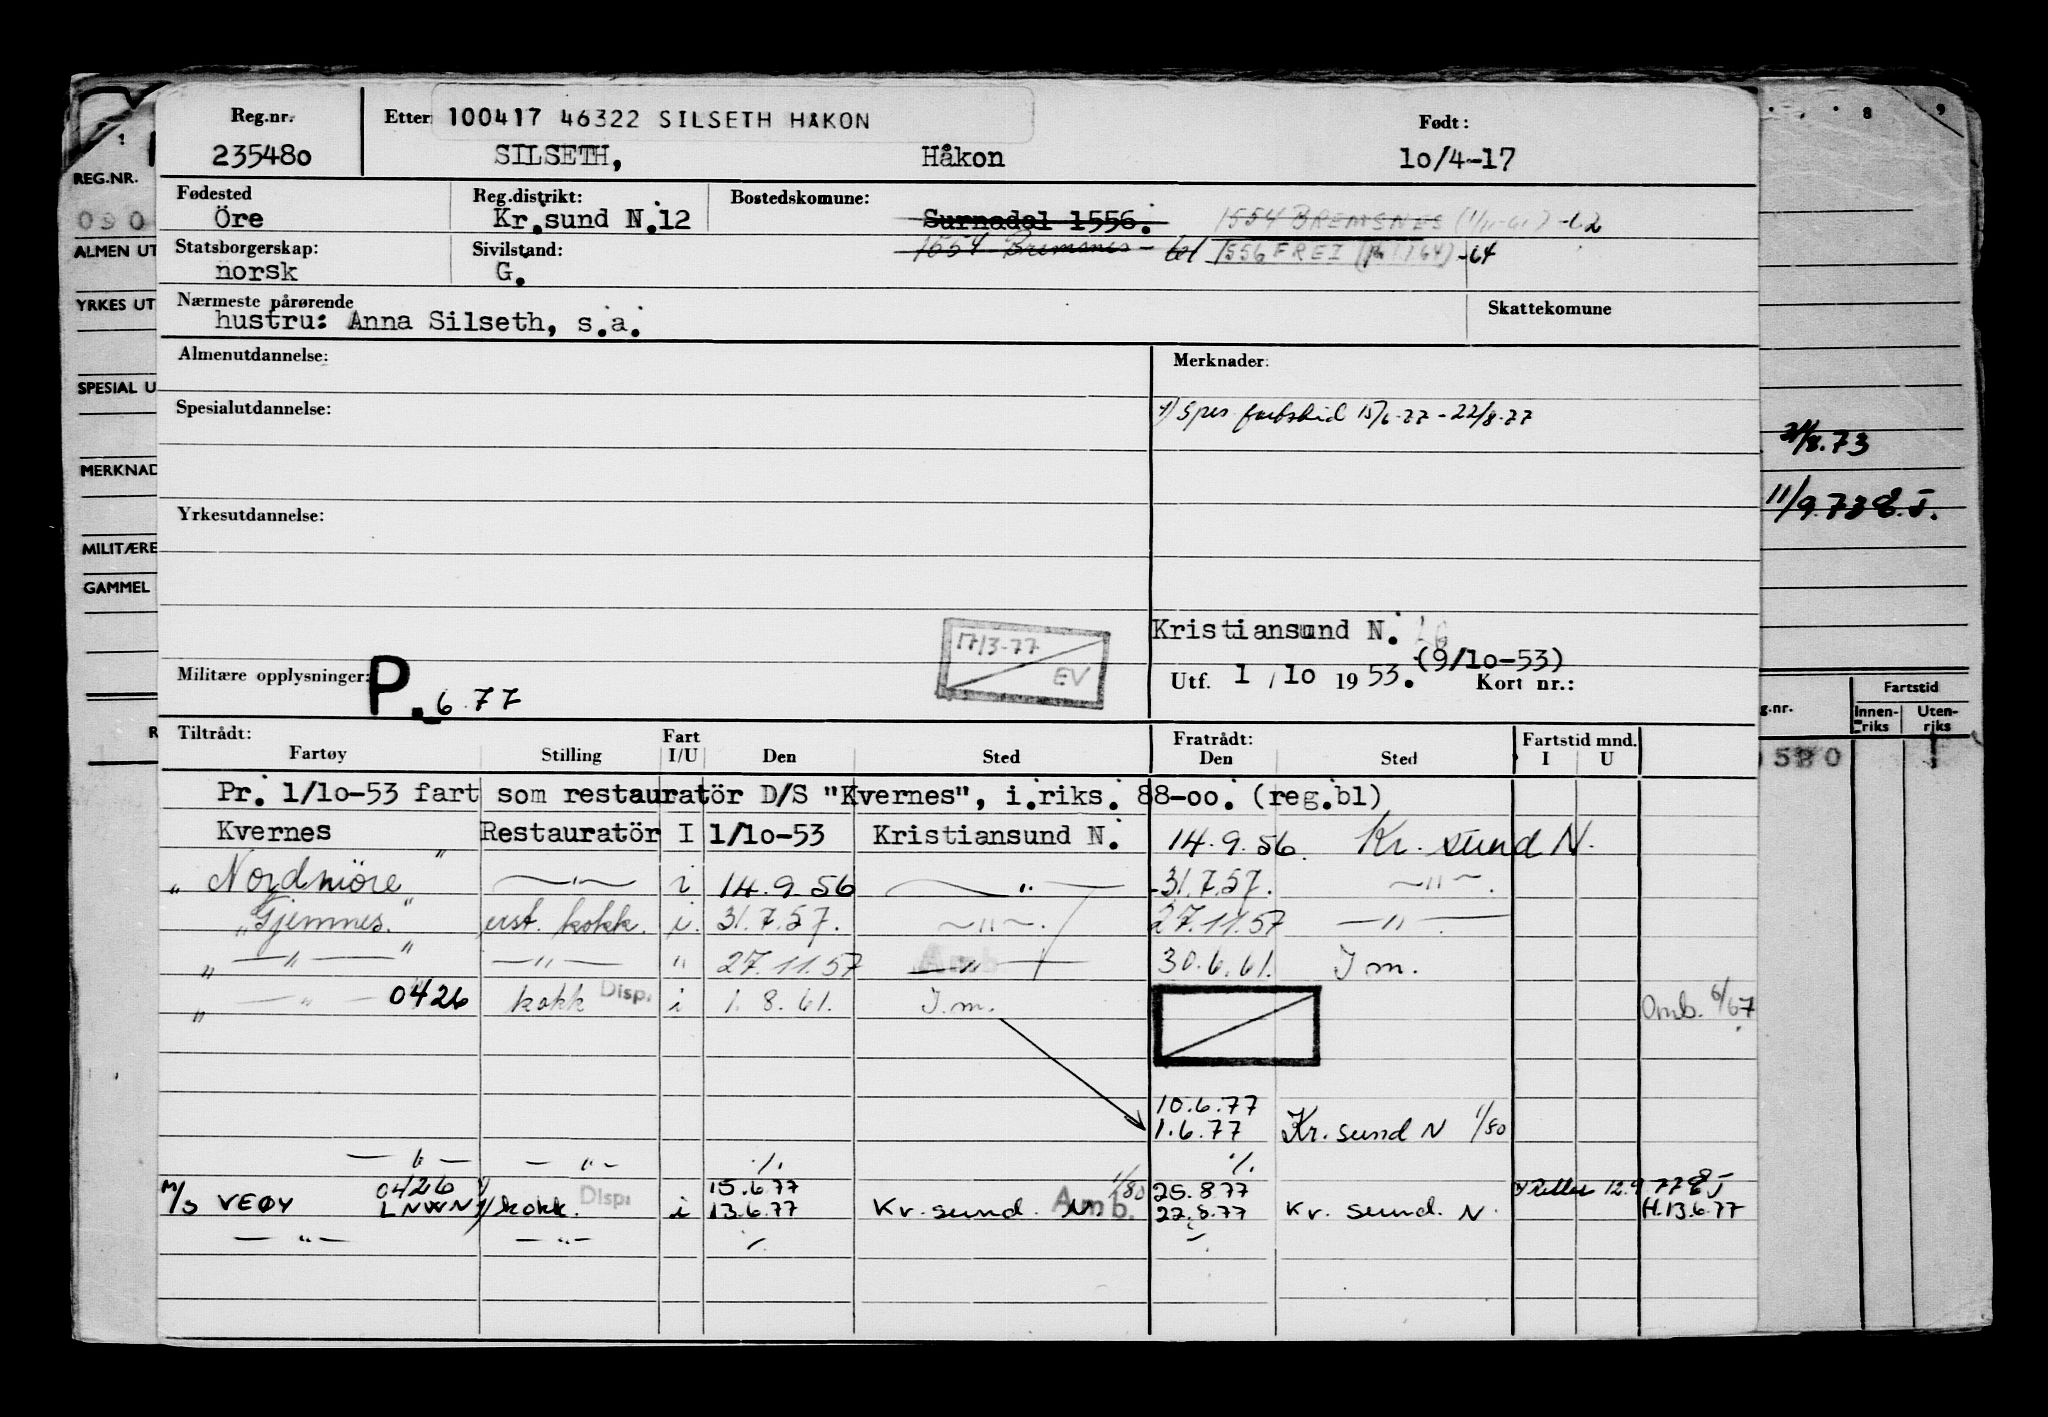 Reg.nr. Etter 100417 46322 SILSETH HAKON Født:
235480 SILSETH, Håkon 10/4-17
Fødested Reg.distrikt: Bostedskomune:
Öre Kr.sund N.12 Surnadal 1556. 1554 BREMSNES (1/11-61) -62
Statsborgerskap: Sivilstand: 1554 Bremsnes - tel 1556 FREI -64
norsk G.
Nærmeste pårørende Skattekomune
hustru: Anna Silseth, s.a.
Almenutdannelse: Merknader:
Spesialutdannelse: 1) Spes fartstid 15/6-77 - 22/8-77
Yrkesutdannelse:
17/3-77 EV
Kristiansund N.
(9/10-53)
Militære opplysninger: P. 6.77 Utf. 1 / 10 19 53. Kort nr.:
Tiltrådt: Fart Fratrådt: Fartstid mnd.
Fartøy Stilling I/U Den Sted Den Sted I U
Pr. 1/10-53 fart som restauratör D/S "Kvernes", i.riks. 88-00. (reg.bl)
Kvernes Restauratör I 1/10-53 Kristiansund N. 14.9.56. Kr. sund N.
" Nordmöre " — " — i 14.9.56 — " — 31.7.57. — " —.
"Gjemnes." erst. kokk. i. 31.7.57. — " —. 27.11.57 — " —.
" — " — " — " — " 27.11.57 — " — 30.6.61. I m.
" — " — " 0426 kokk Disp. i 1.8.61. I.m. Omb. 6/67
10.6.77
1.6.77 Kr. sund N 1/80
— " — — " — ./. ./.
0426 1) 15.6.77 1/80 25.8.77 12.9.77 EJ
M/S VEØY LNWN kokk. Disp. i 13.6.77 Kr. sund. N. Amb. 22.8.77 Kr. sund. N. H.13.6.77
— " — — " — ./. ./.
REG.NR.
090
ALMEN UT
YRKES UT
SPESIAL U
MERKNAD
MILITÆRE
GAMMEL
R
8 9
/8.73
11/9.73 E.J.
g.nr. Fartstid
Innen- Uten-
riks riks